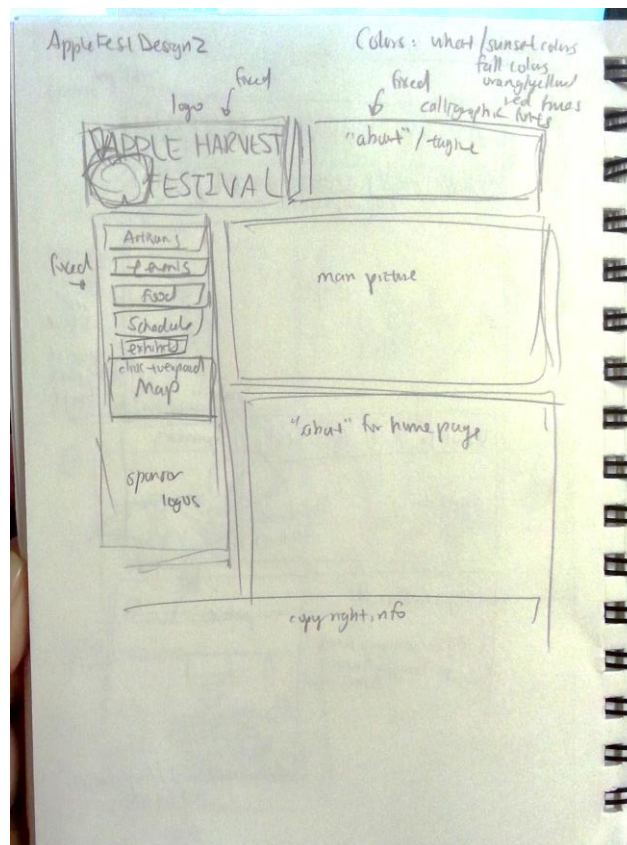 AppleFest Design 2
Colors: wheat/sunset colors
fall colors
orange/yellow/
red hues
calligraphic fonts
logo
fixed
fixed
APPLE HARVEST
FESTIVAL
"about"/tagline
fixed
Artisans
Events
Food
Schedule
exhibits
click to expand
Map
sponsor
logos
main picture
"about" for home page
copyright info